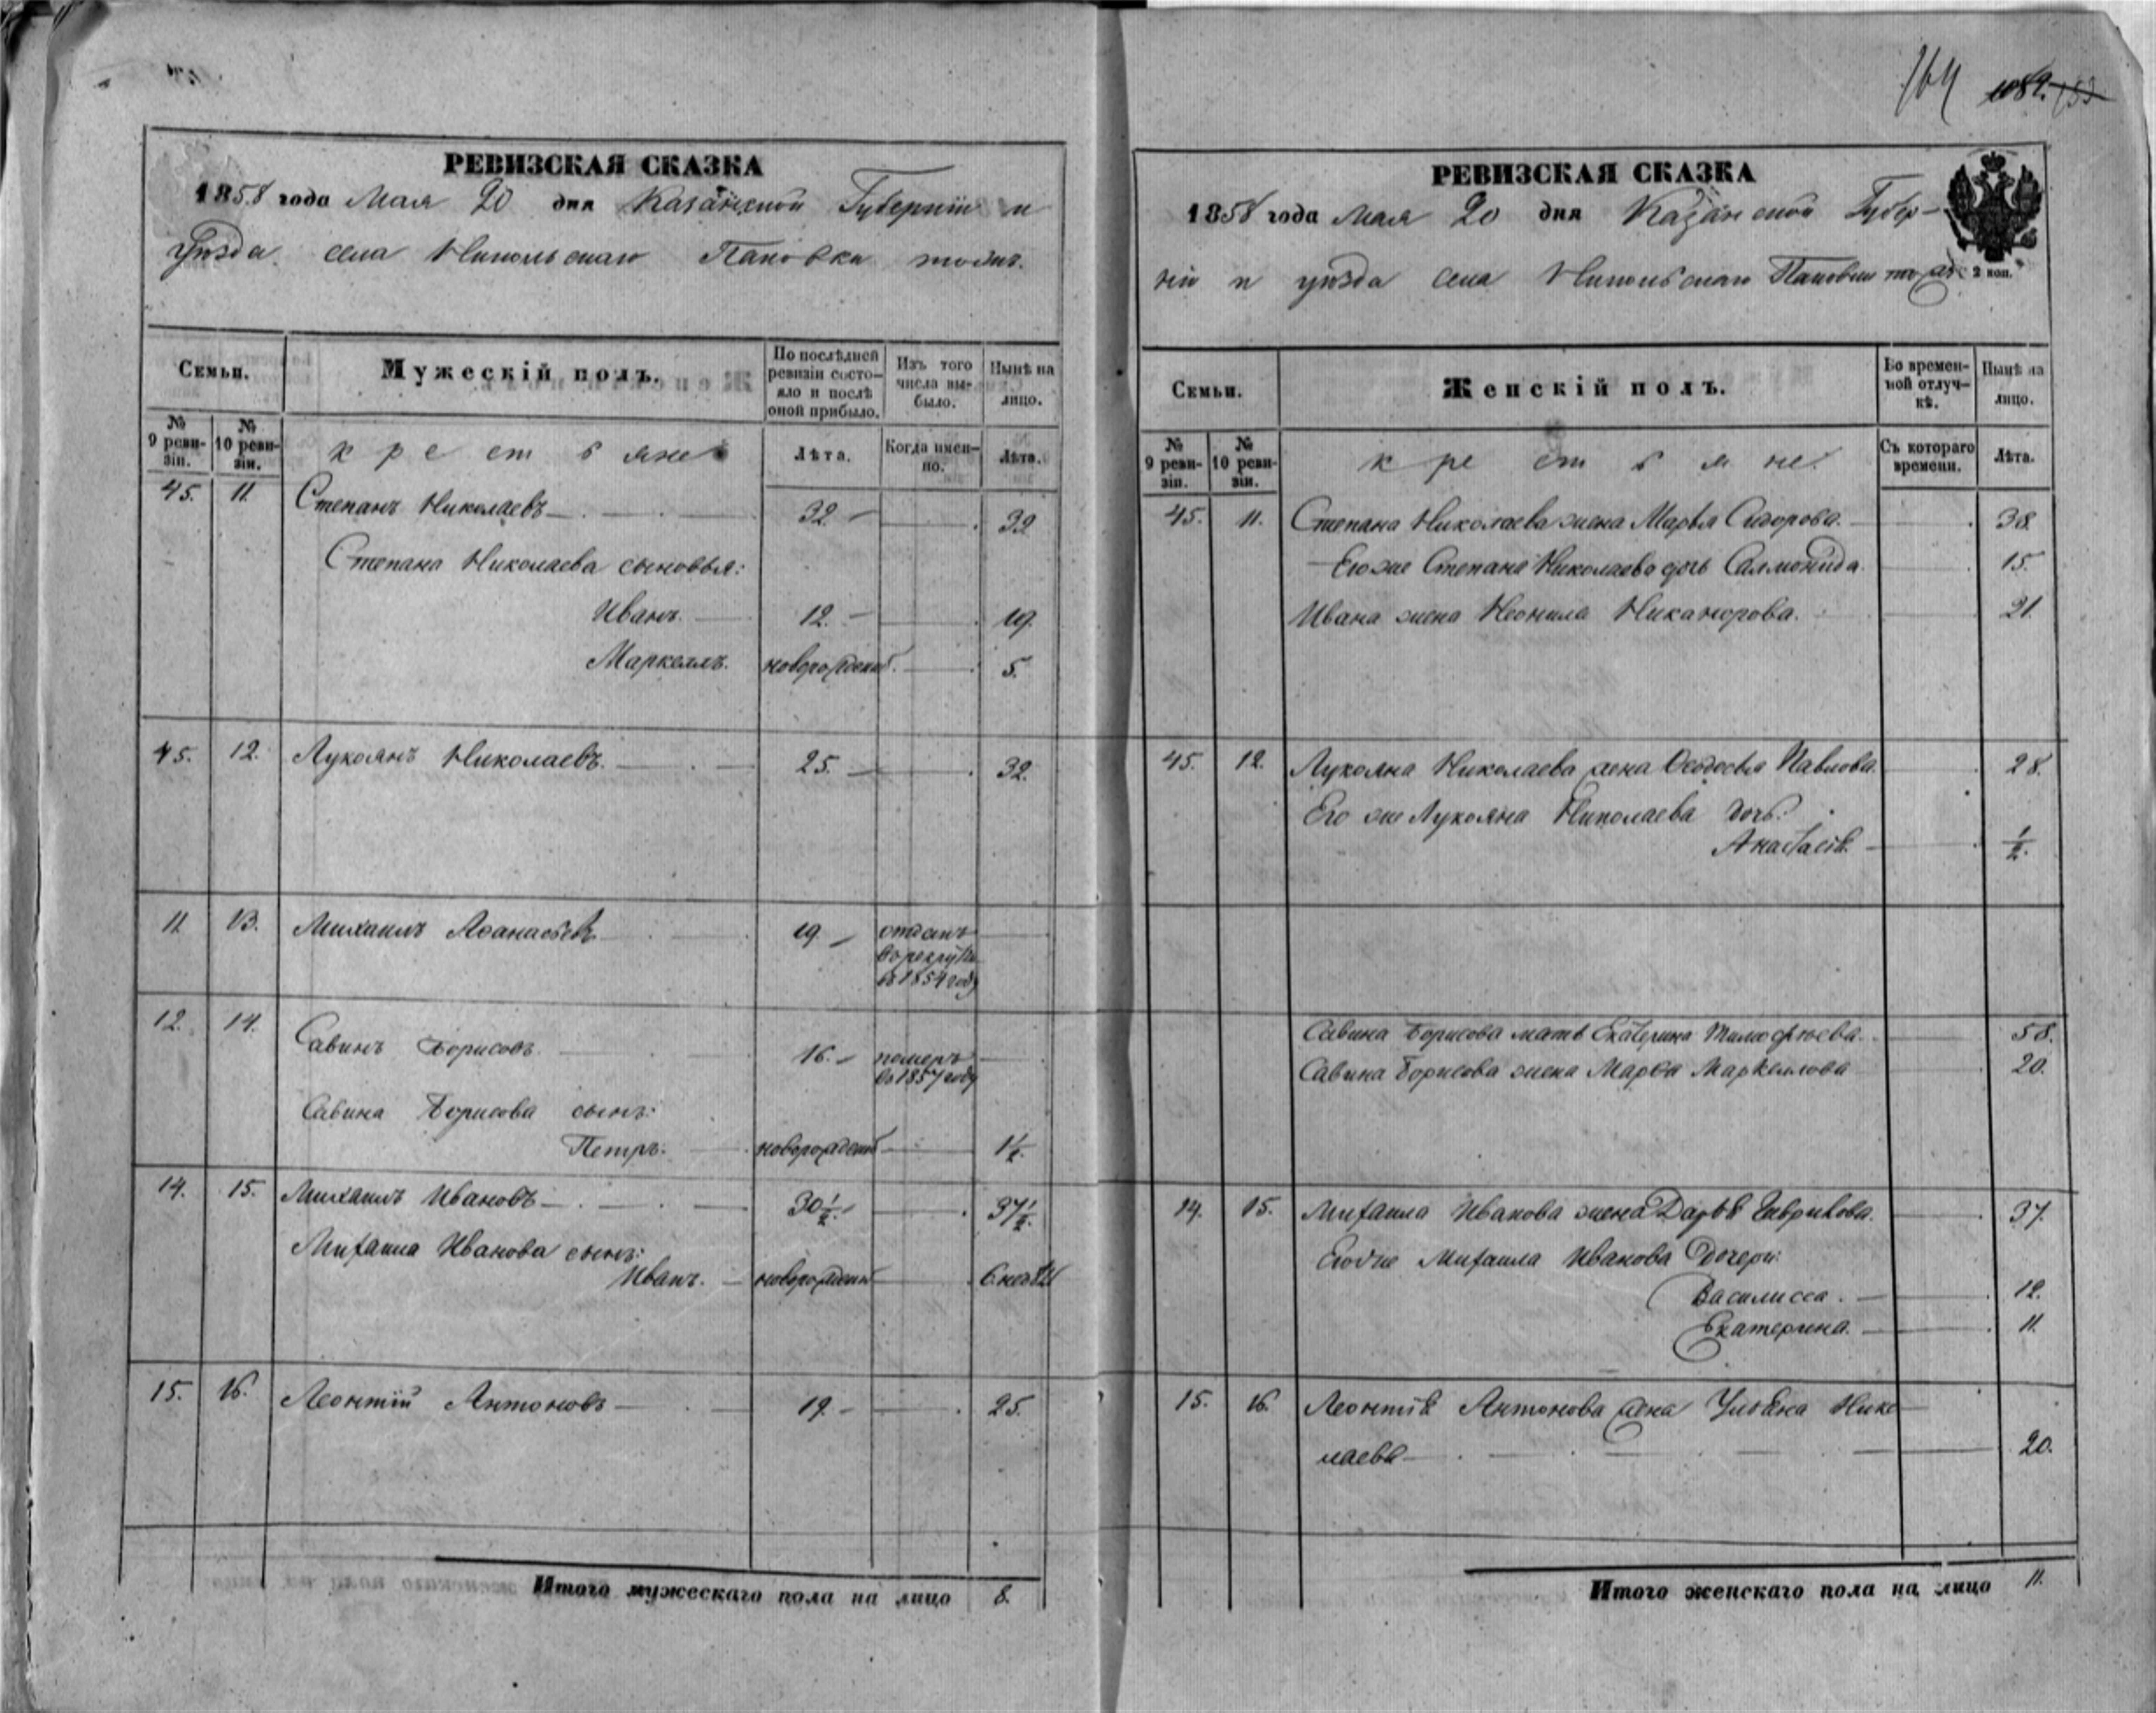 164 1089. 153
РЕВИЗСКАЯ СКАЗКА
1858 года Мая 20 дня Казанской Губерніи и
уѣзда села Никольскаго Пановка тожъ.
Семьи.
Мужескій полъ.
По послѣдней ревизіи состояло и послѣ оной прибыло.
Изъ того числа выбыло.
Нынѣ на лицо.
№ 9 ревизіи.
№ 10 ревизіи.
крестьяне
Лѣта.
Когда именно.
Лѣта.
45. 11. Степанъ Николаевъ 32 32
Степана Николаева сыновья:
Иванъ. 12. 19.
Маркеллъ. новорожденный. 5.
45. 12. Лукоянъ Николаевъ. 25. 32.
11 13. Михаилъ Афанасьевъ 19 отданъ
въ рекруты
въ 1854 году
12. 14. Савинъ Борисовъ 16. померъ
въ 1857 году
Савина Борисова сынъ:
Петръ. новорожденный 1 1/2.
14. 15. Михаилъ Ивановъ 30 1/2. 37 1/2.
Михаила Иванова сынъ:
Иванъ. новорожденный 6 недѣль
15. 16. Леонтій Антоновъ 19. 25.
Итого мужескаго пола на лицо 8.
РЕВИЗСКАЯ СКАЗКА
1858 года Мая 20 дня Казанской Губер-
ніи и уѣзда села Никольскаго Пановки тожъ
2 коп.
Семьи.
Женскій полъ.
Во временной отлучкѣ.
Нынѣ на лицо.
№ 9 ревизіи.
№ 10 ревизіи.
крестьяне.
Съ котораго времени.
Лѣта.
45. 11. Степана Николаева жена Марья Сидорова. 38.
Его же Степана Николаева дочь Саломонида. 15.
Ивана жена Неонила Никанорова. 21.
45. 12. Лукояна Николаева жена Ѳедосья Павлова. 28.
Его же Лукояна Николаева дочь:
Анастасія. 1/2.
Савина Борисова мать Екатерина Тимофеева. 58.
Савина Борисова жена Марфа Маркеллова 20.
14. 15. Михаила Иванова жена Дарья Гаврилова. 37.
Его же Михаила Иванова дочери:
Василисса. 12.
Екатерина. 11.
15. 16. Леонтія Антонова жена Ульяна Нико
лаева 20.
Итого женскаго пола на лицо 11.